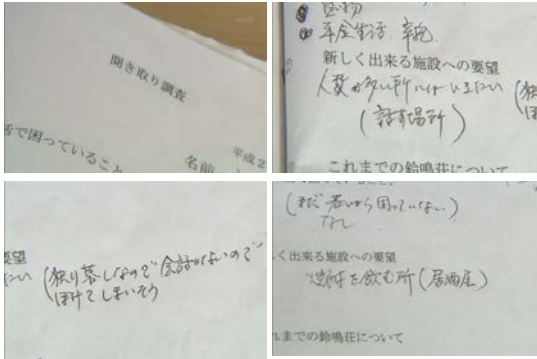 聞き取り調査
平成2
名前
活で困っていること
年金生活
新しく出来る施設への要望
人数が多い所にはいきたい
(話す場所)
これまでの鈴鳴荘について
要望
(独り暮しなので会話がないので
ぼけてしまいそう
(まだ若いから困っていない)
なし
しく出来る施設への要望
酒を飲む所(居酒屋)
れまでの鈴鳴荘について